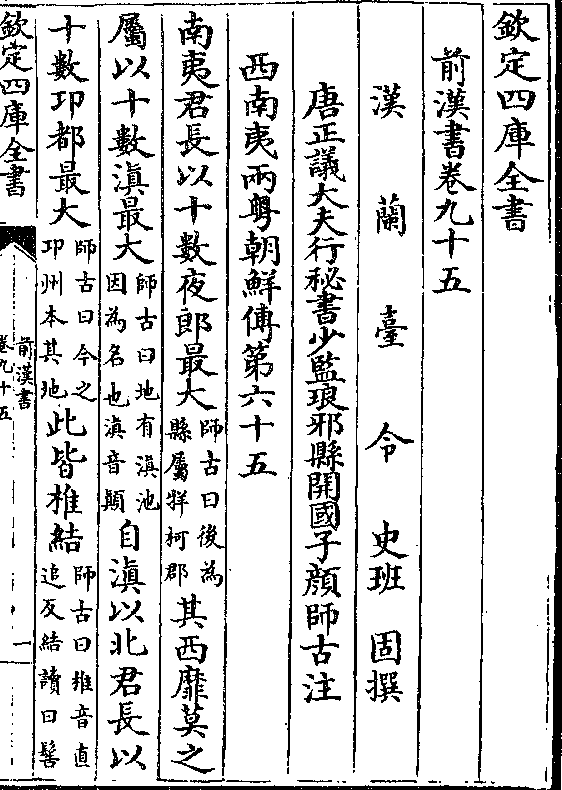 欽定四庫全書
前漢書卷九十五
漢蘭臺令史班固撰
唐正議大夫行秘書少監琅邪縣開國子顏師古注
西南夷兩粵朝鮮傳第六十五
南夷君長以十數夜郎最大師古曰後為縣屬牂柯郡其西靡莫之
屬以十數滇最大師古曰地有滇池因為名也滇音顛自滇以北君長以
十數邛都最大師古曰今之邛州本其地此皆椎結師古曰椎音直追反結讀曰髻
欽定四庫全書
前漢書
卷九十五
一